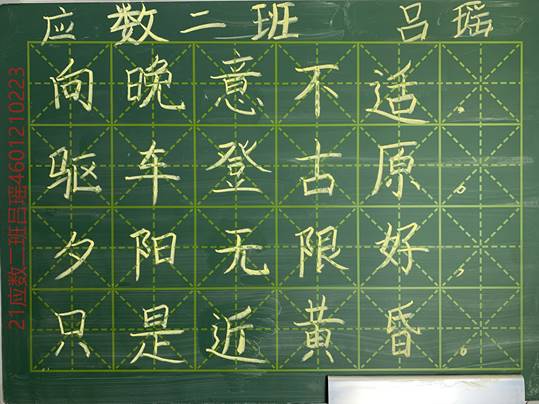 应数二班 吕瑶
向晚意不适，
驱车登古原。
夕阳无限好，
只是近黄昏。
21应数二班吕瑶4601210223